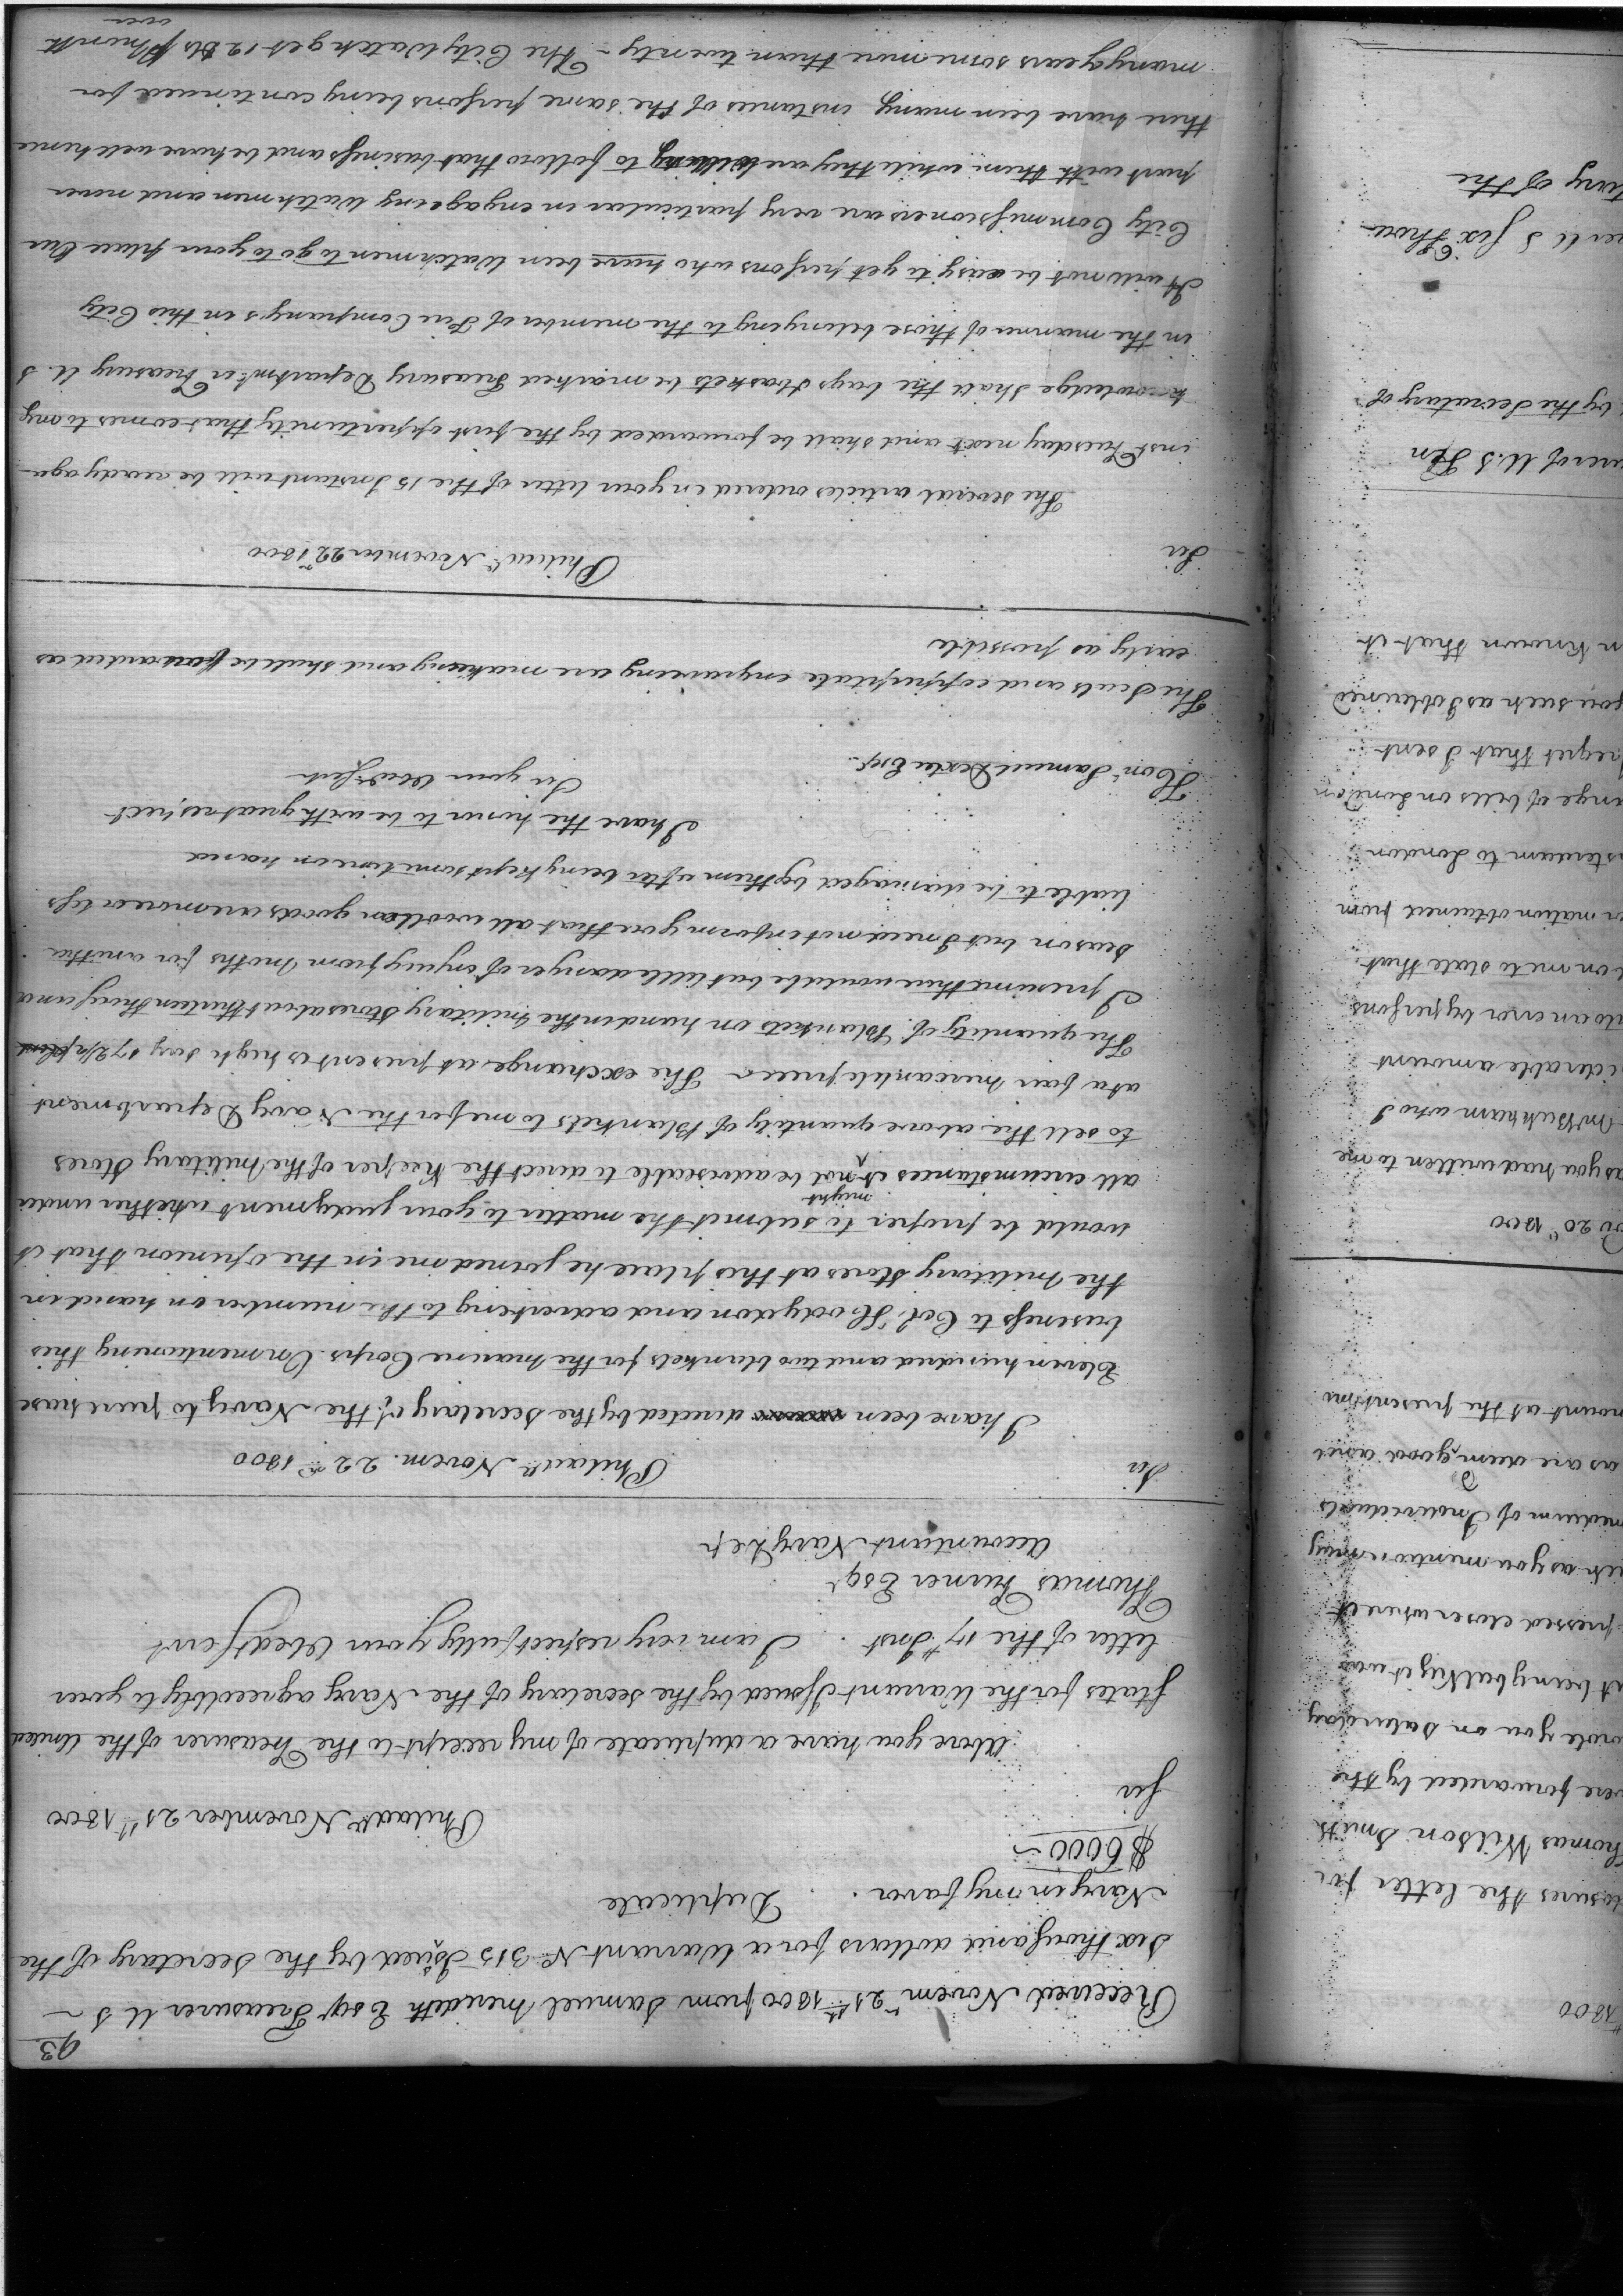 93
Received Novem 21st 1800 from Samuel Meredith Esqr Treasurer U S
Six thousand dollars for a Warrant No 315 Issued by the Secretary of the
Navy in my favor. Duplicate
$6000
Sir Philada November 21st 1800
Above you have a duplicate of my receipt to the Treasurer of the United
States for the Warrant Issued by the Secretary of the Navy agreeably to your
letter of the 17th Inst. I am very respectfully your Obedt Servt
Thomas Turner Esqr
Accountant Navy Dep
Sir Philada Novem. 22nd 1800
I have been directed by the Secretary of the Navy to purchase
Eleven hundred and two blankets for the Marine Corps. On mentioning this
business to Col. Hodgdon and adverting to the number on hand in
the Military Stores at this place he joined me in the opinion that it
would be proper to submit the matter to your judgment whether under
all circumstances it might not be adviseable to direct the Keeper of the Military Stores
to sell the above quantity of Blankets to me for the Navy Department
at a fair mercantile price. The exchange at present is high say 172½
The quantity of Blankets on hand in the Military Stores about thirteen thousand
I presume there would be but little danger of injury from Moths for another
season but I need not inform you that all woollen goods are more or less
liable to be damaged by them after being kept some time on hand
I have the honor to be with great respect
Sir your Obedt Servt
Honl Samuel Dexter Esqr
The Seals and copperplate engraving are making and shall be forwarded as
early as possible
Sir Philada November 22nd 1800
The several articles ordered in your letter of the 15 Instant will be ready aga
inst Tuesday next and shall be forwarded by the first opportunity that comes to my
knowledge Shall the bags & baskets be marked Treasury Departmt or Treasury U. S
in the manner of those belonging to the member of Fire Companys in this City
It will not be easy to get persons who have been Watchmen to go to your place Our
City Commissioners are very particular in engageing Watchmen and never
part with them while they are willing to follow that business and behave well hence
there have been many instances of the same persons being continued for
many years some more than twenty - The City Watch get 12 Ds P Month
over
1800
the letter for
Thomas Wilson Smith
were forwarded by the
you on Saturday
being balky it was
pressed closer where it
as you mention may
medium of Individuals
as are deem'd good and
amount at the present
20th 1800
as you had written to me
Mr Bickham who I
considerable amount
by persons
on me to state that
information obtained from
Amsterdam to London
exchange of bills on London
regret that I sent
you such as I obtained
known that it
of U.S Ten
by the Secretary of
U S Six Thou
of the